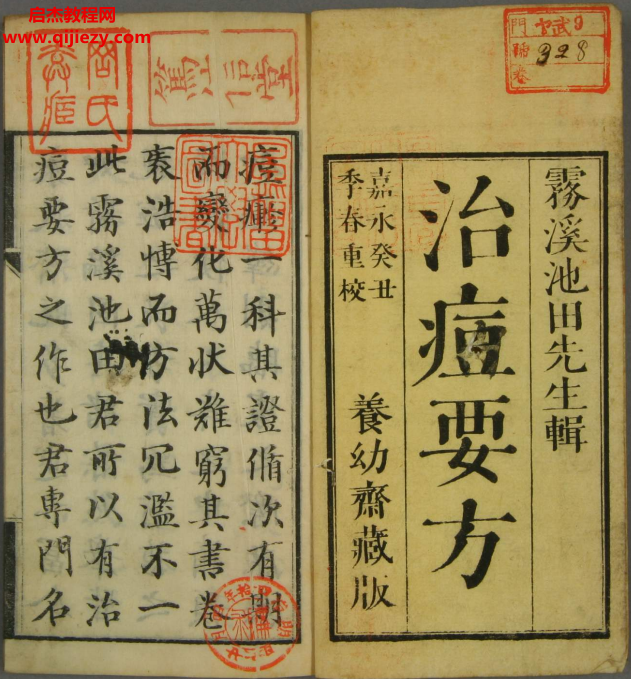 启杰教程网
www.qijiezy.com
霧溪池田先生輯
治痘要方
嘉永癸丑
季春重校
養幼齋藏版
門
號
卷
328
一科其證脩次有
而變化萬狀難窮其書卷
袠浩愽而方法冗濫不一
此霧溪池田君所以有治
痘要方之作也君專門名